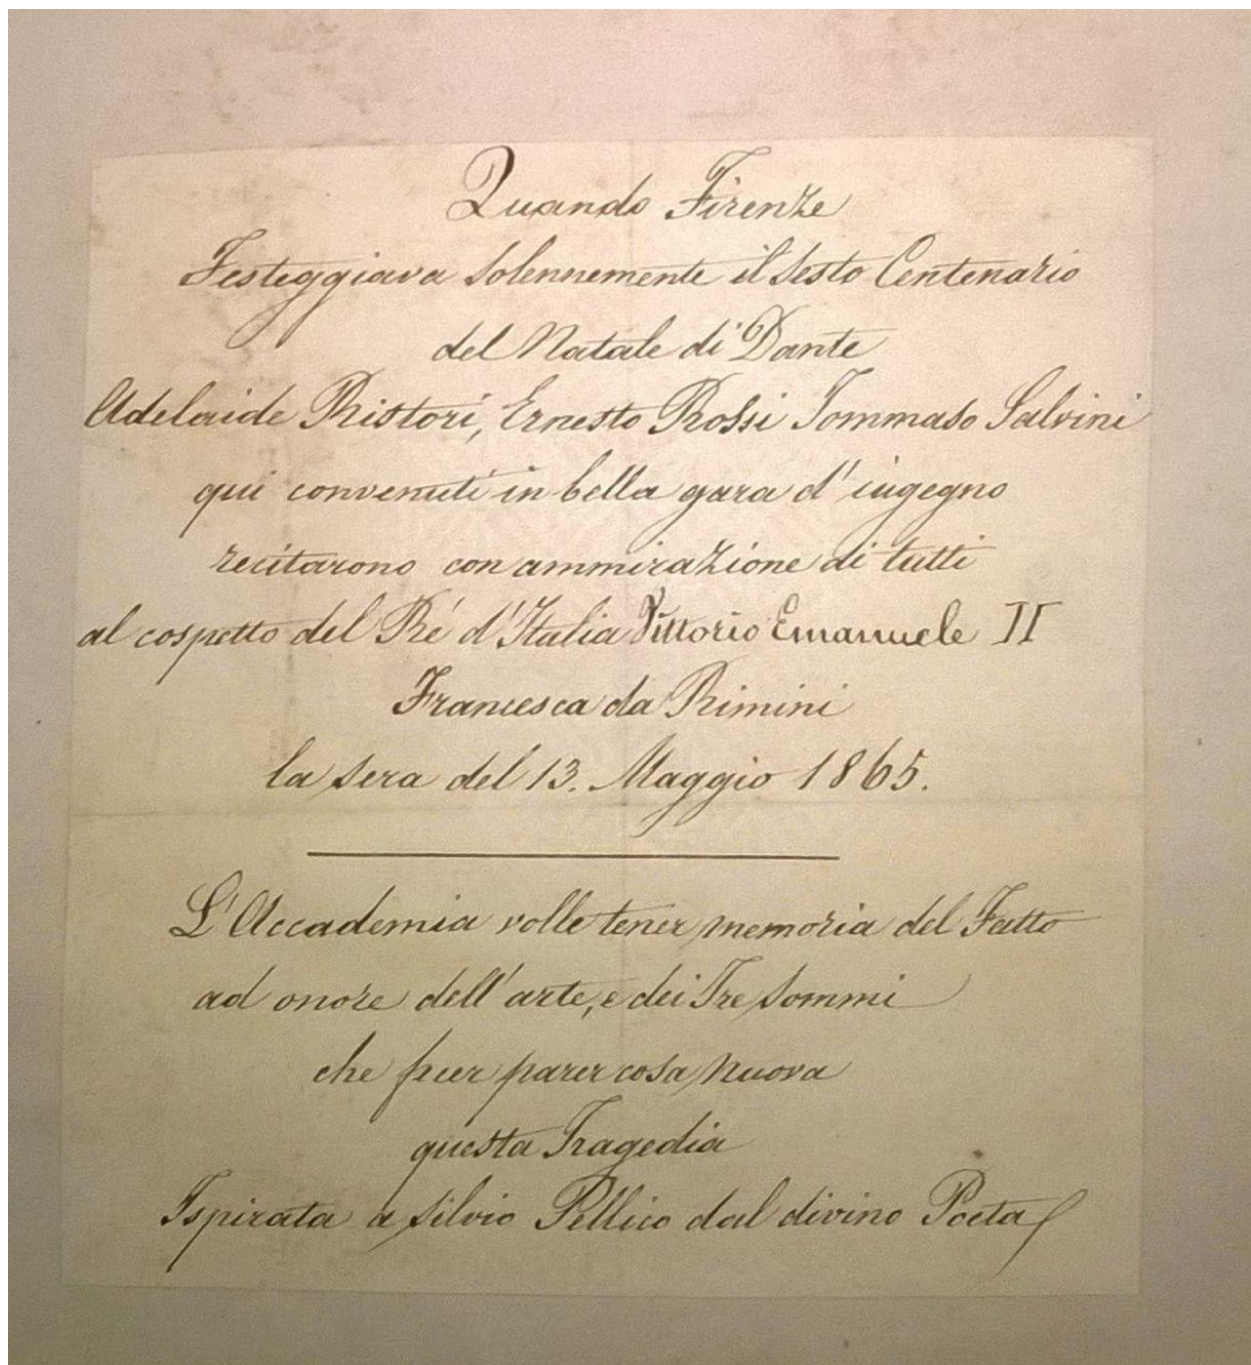 Quando Firenze
Festeggiava solennemente il sesto Centenario
del Natale di Dante
Adelaide Ristori, Ernesto Rossi Tommaso Salvini
qui convenuti in bella gara d'ingegno
recitarono con ammirazione di tutti
al cospetto del Ré d'Italia Vittorio Emanuele II
Francesca da Rimini
la sera del 13. Maggio 1865.
L'Accademia volle tener memoria del Fatto
ad onore dell'arte, e dei Tre sommi
che fecer parer cosa nuova
questa Tragedia
Ispirata a Silvio Pellico dal divino Poeta